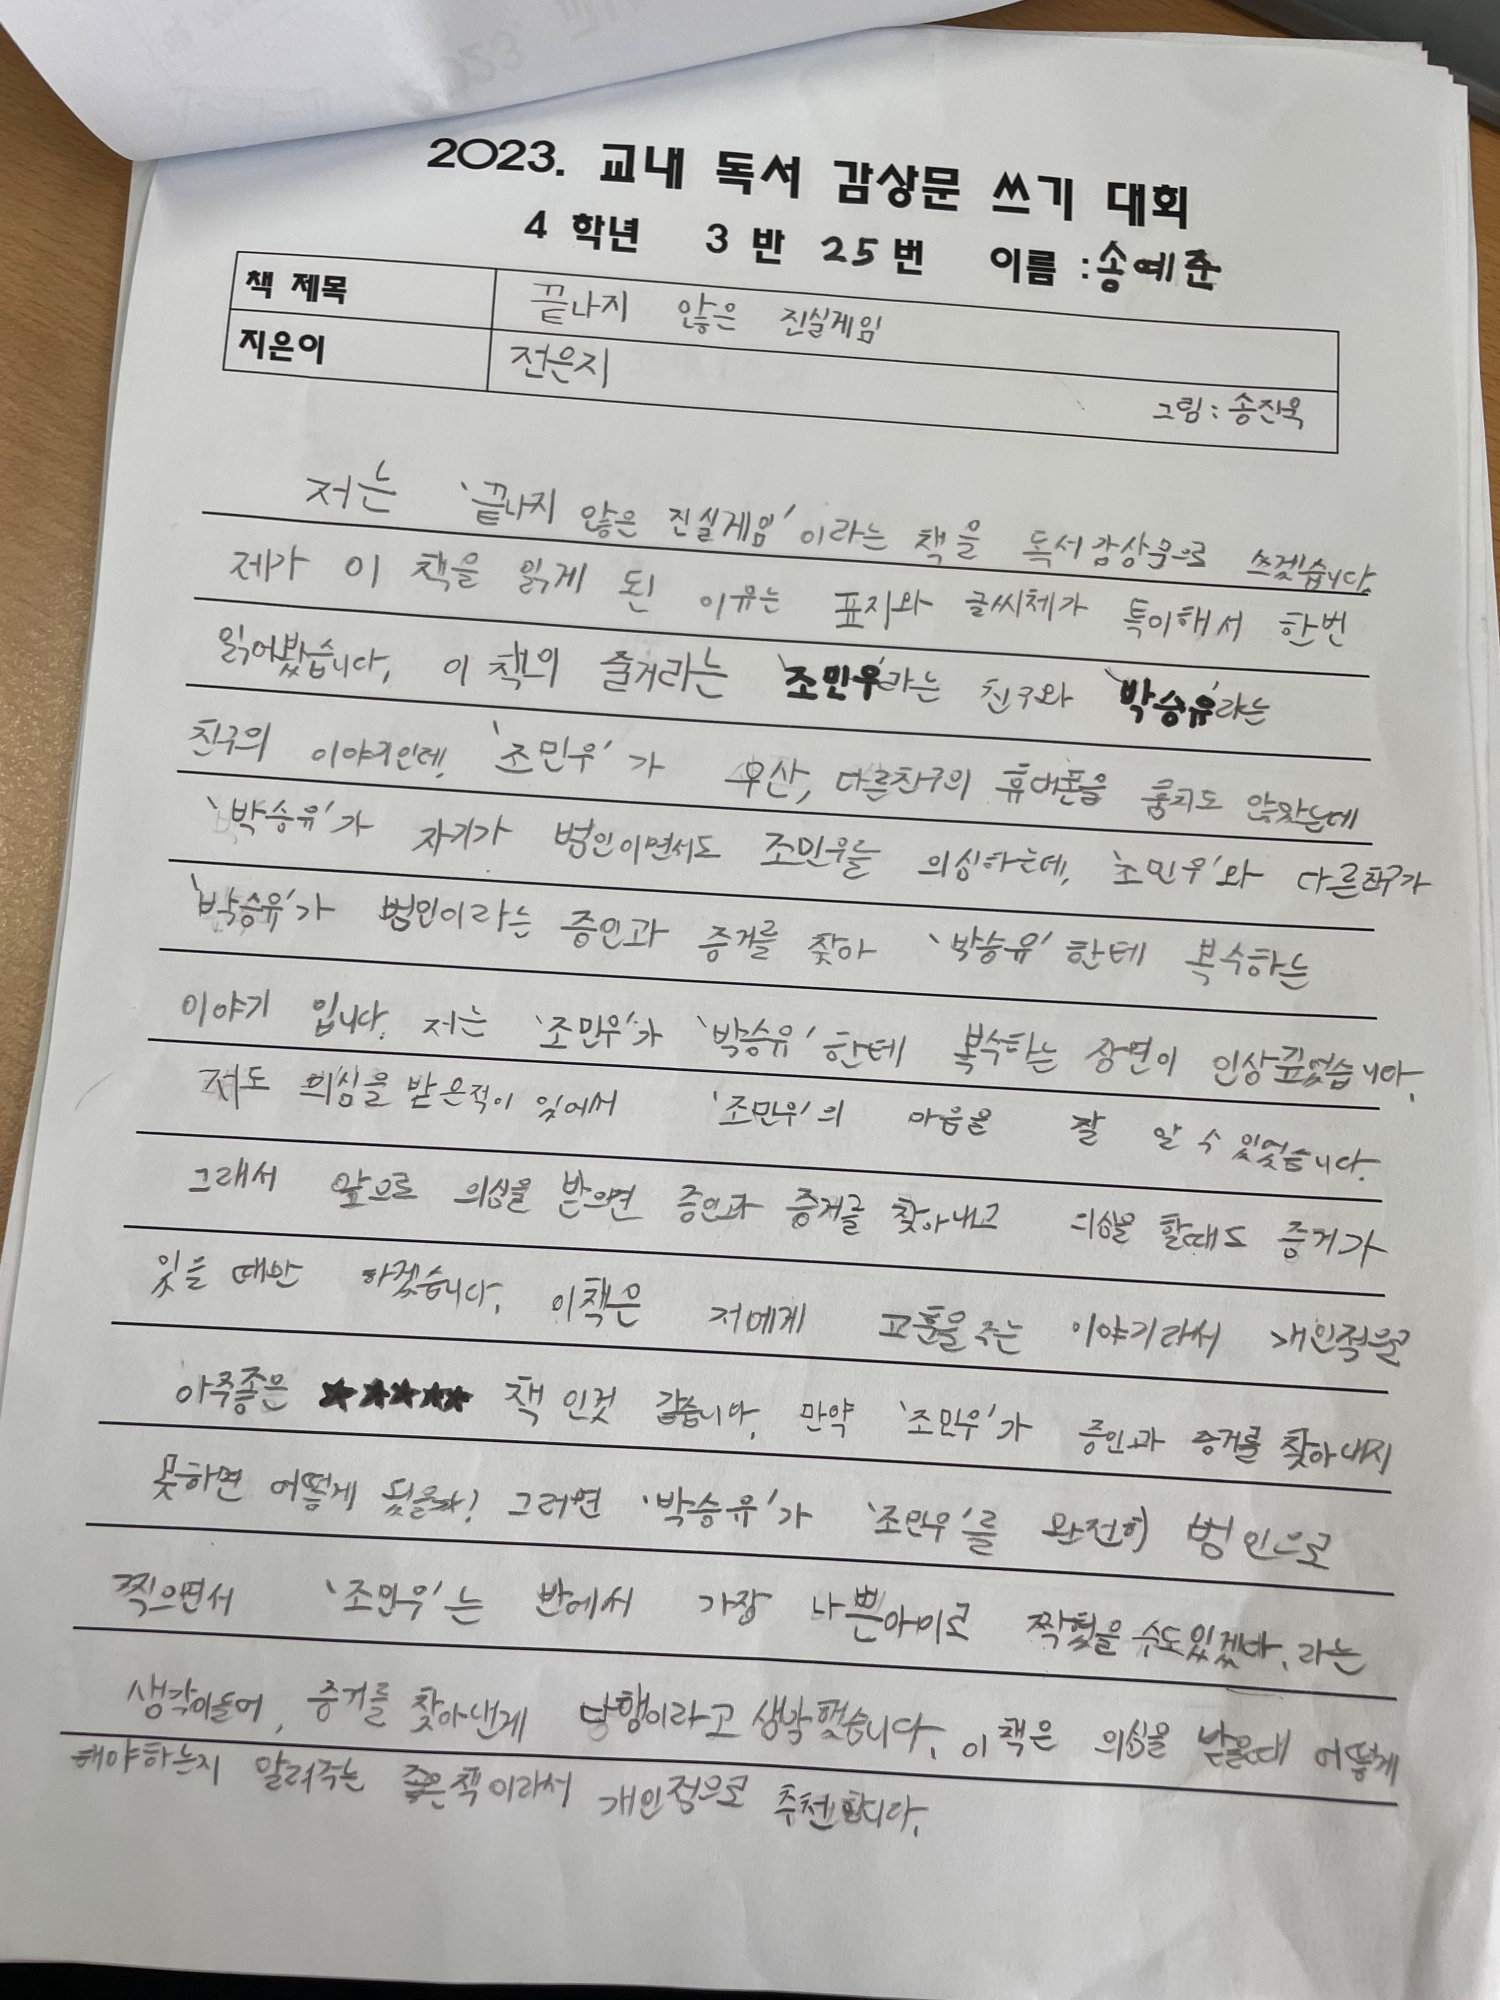 2023. 교내 독서 감상문 쓰기 대회
4 학년 3 반 25번 이름 : 송예준
책 제목 끝나지 않은 진실게임
지은이 전은지 그림 : 송진욱
저는 '끝나지 않은 진실게임'이라는 책을 독서감상문으로 쓰겠습니다.
제가 이 책을 읽게 된 이유는 표지와 글씨체가 특이해서 한번
읽어봤습니다. 이 책의 줄거라는 '조민우'라는 친구와 '박승유'라는
친구의 이야기인데, '조민우'가 우산, 다른친구의 휴대폰을 훔치도 않았는데
'박승유'가 자기가 범인이면서도 조민우를 의심하는데, '조민우'와 다른친구가
'박승유'가 범인이라는 증인과 증거를 찾아 '박승유'한테 복수하는
이야기 입니다. 저는 '조민우'가 '박승유'한테 복수하는 장면이 인상깊었습니다.
저도 의심을 받은적이 있어서 '조민우'의 마음을 잘 알 수 있었습니다.
그래서 앞으로 의심을 받으면 증인과 증거를 찾아내고 의심을 할때도 증거가
있을 때만 하겠습니다. 이책은 저에게 교훈을주는 이야기라서 개인적을로
아주좋은 ★★★★★ 책 인것 같습니다. 만약 '조민우'가 증인과 증거를 찾아내지
못하면 어떻게 됬을까? 그러면 '박승유'가 '조민우'를 완전히 범인으로
찍으면서 '조민우'는 반에서 가장 나쁜아이로 찍혔을 수도있겠다. 라는
생각이들어, 증거를 찾아낸게 다행이라고 생각했습니다. 이 책은 의심을 받을때 어떻게
해야하는지 알려주는 좋은책이라서 개인적으로 추천합니다.